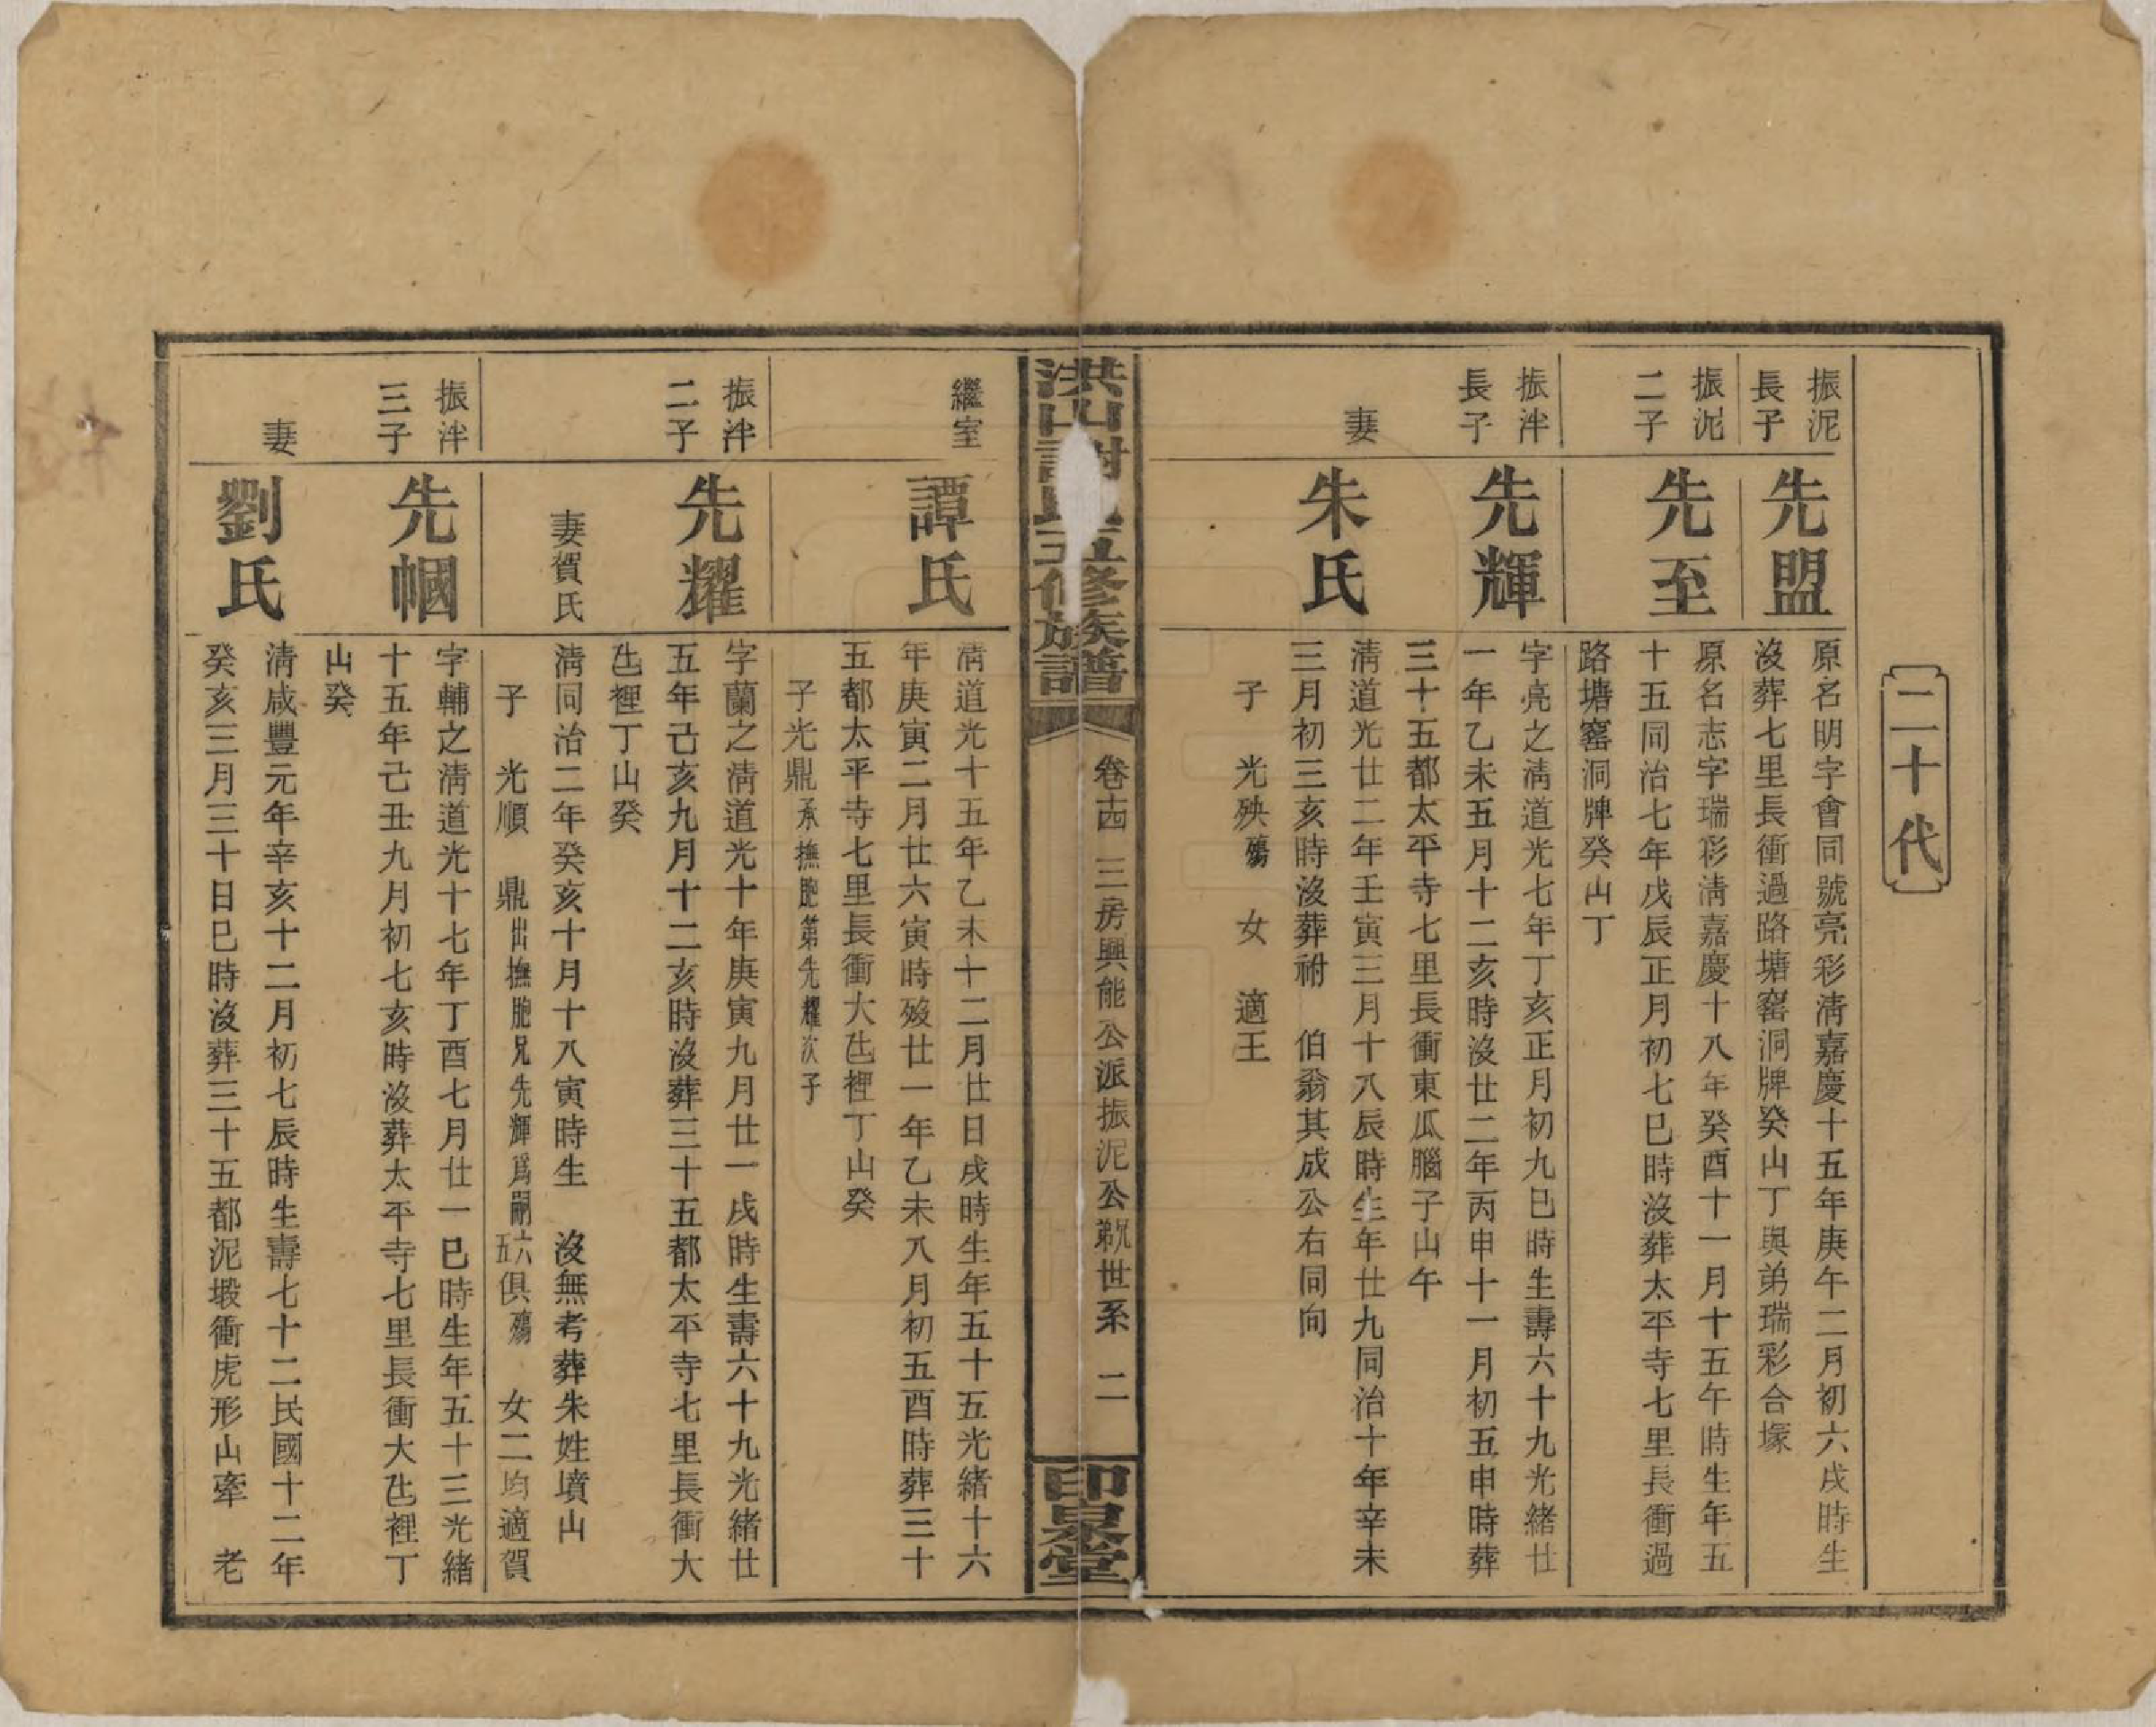 二十代
振泥
長子
先盟
原名明字會同號亮彩淸嘉慶十五年庚午二月初六戌時生
沒葬七里長衝過路塘窰洞牌癸山丁與弟瑞彩合塚
振泥
二子
先至
原名志字瑞彩淸嘉慶十八年癸酉十一月十五午時生年五
十五同治七年戊辰正月初七巳時沒葬太平寺七里長衝過
路塘窰洞牌癸山丁
振泮
長子
先輝
字亮之淸道光七年丁亥正月初九巳時生壽六十九光緒廿
一年乙未五月十二亥時沒廿二年丙申十一月初五申時葬
三十五都太平寺七里長衝東瓜腦子山午
妻
朱氏
淸道光廿二年壬寅三月十八辰時生年廿九同治十年辛未
三月初三亥時沒葬祔 伯翁其成公右同向
子 光殃殤 女 適王
洪山謝氏五修族譜
卷十四 三房興能公派振泥公世系 二
印泉堂
繼室
譚氏
淸道光十五年乙未十二月廿日戌時生年五十五光緒十六
年庚寅二月廿六寅時歿廿一年乙未八月初五酉時葬三十
五都太平寺七里長衝大凸裡丁山癸
子光鼎承撫胞弟先耀次子
振泮
二子
先耀
字蘭之淸道光十年庚寅九月廿一戌時生壽六十九光緒廿
五年己亥九月十二亥時沒葬三十五都太平寺七里長衝大
凸裡丁山癸
妻賀氏
淸同治二年癸亥十月十八寅時生 沒無考葬朱姓墳山
子 光順 鼎出撫胞兄先輝爲嗣 五六俱殤 女二均適賀
振泮
三子
先幗
字輔之淸道光十七年丁酉七月廿一巳時生年五十三光緒
十五年己丑九月初七亥時沒葬太平寺七里長衝大凸裡丁
山癸
妻
劉氏
淸咸豐元年辛亥十二月初七辰時生壽七十二民國十二年
癸亥三月三十日巳時沒葬三十五都泥塅衝虎形山牽 老